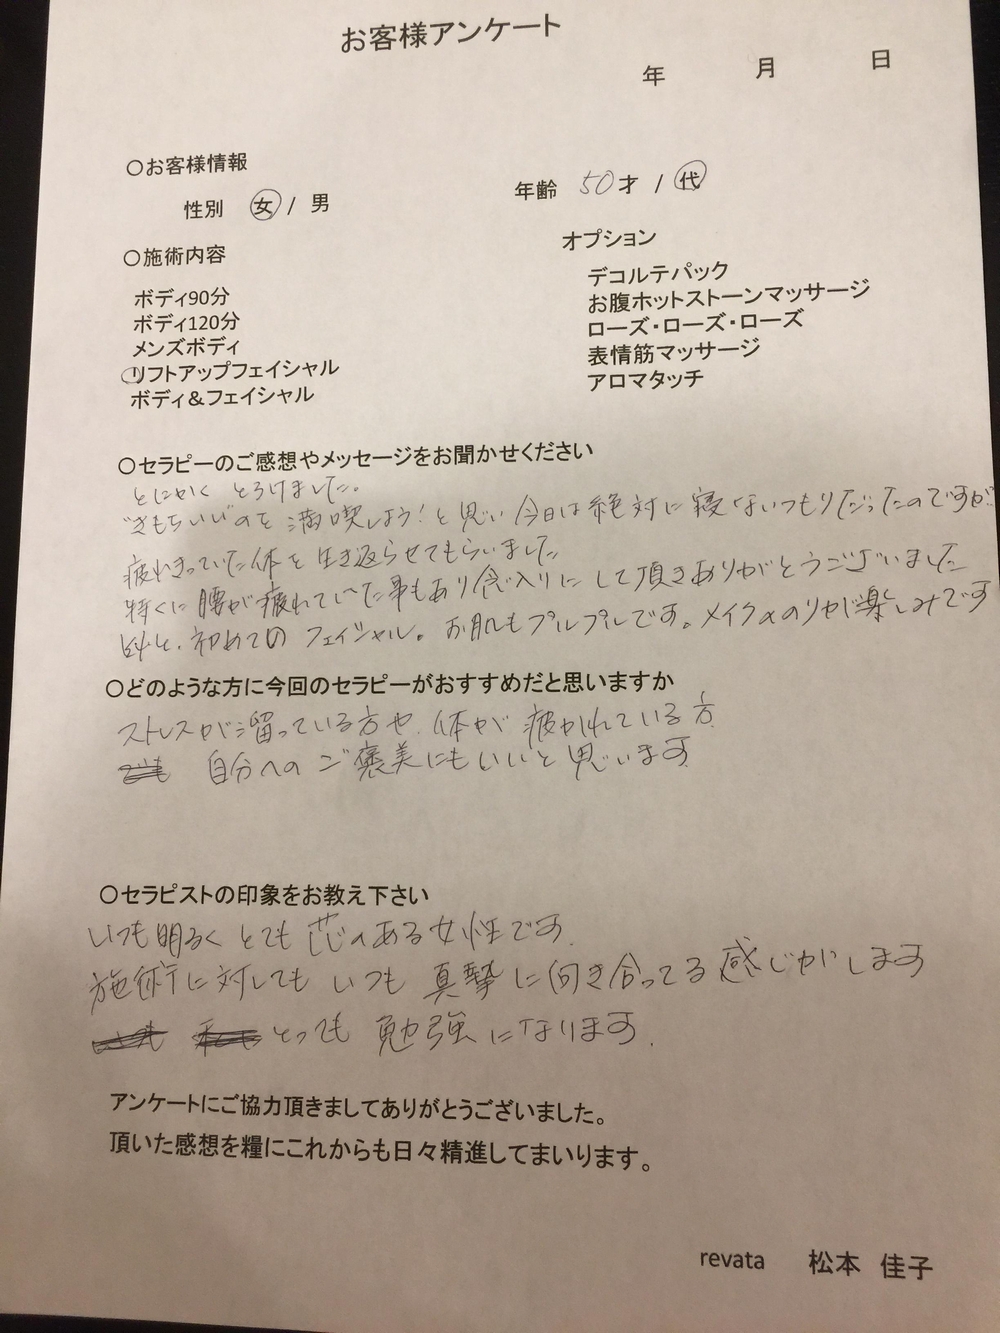 お客様アンケート
年 月 日
○お客様情報
性別 女 / 男
年齢 50才 / 代
○施術内容
ボディ90分
ボディ120分
メンズボディ
リフトアップフェイシャル
ボディ＆フェイシャル
オプション
デコルテパック
お腹ホットストーンマッサージ
ローズ・ローズ・ローズ
表情筋マッサージ
アロマタッチ
○セラピーのご感想やメッセージをお聞かせください
とにかく とろけました。
"きもちいい"のを満喫しよう!と思い今日は絶対に寝ないつもりだったのですが…
疲れきっていた体を生き返らせてもらいました
特に腰が疲れていた事もあり念入りにして頂きありがとうございました
初めてのフェイシャル。お肌もプルプルです。メイクののりが楽しみです
○どのような方に今回のセラピーがおすすめだと思いますか
ストレスが溜っている方や、体が疲かれている方
自分へのご褒美にもいいと思います
○セラピストの印象をお教え下さい
いつも明るくとても芯のある女性です。
施術に対してもいつも真摯に向き合ってる感じがします
とっても勉強になります。
アンケートにご協力頂きましてありがとうございました。
頂いた感想を糧にこれからも日々精進してまいります。
revata 松本 佳子